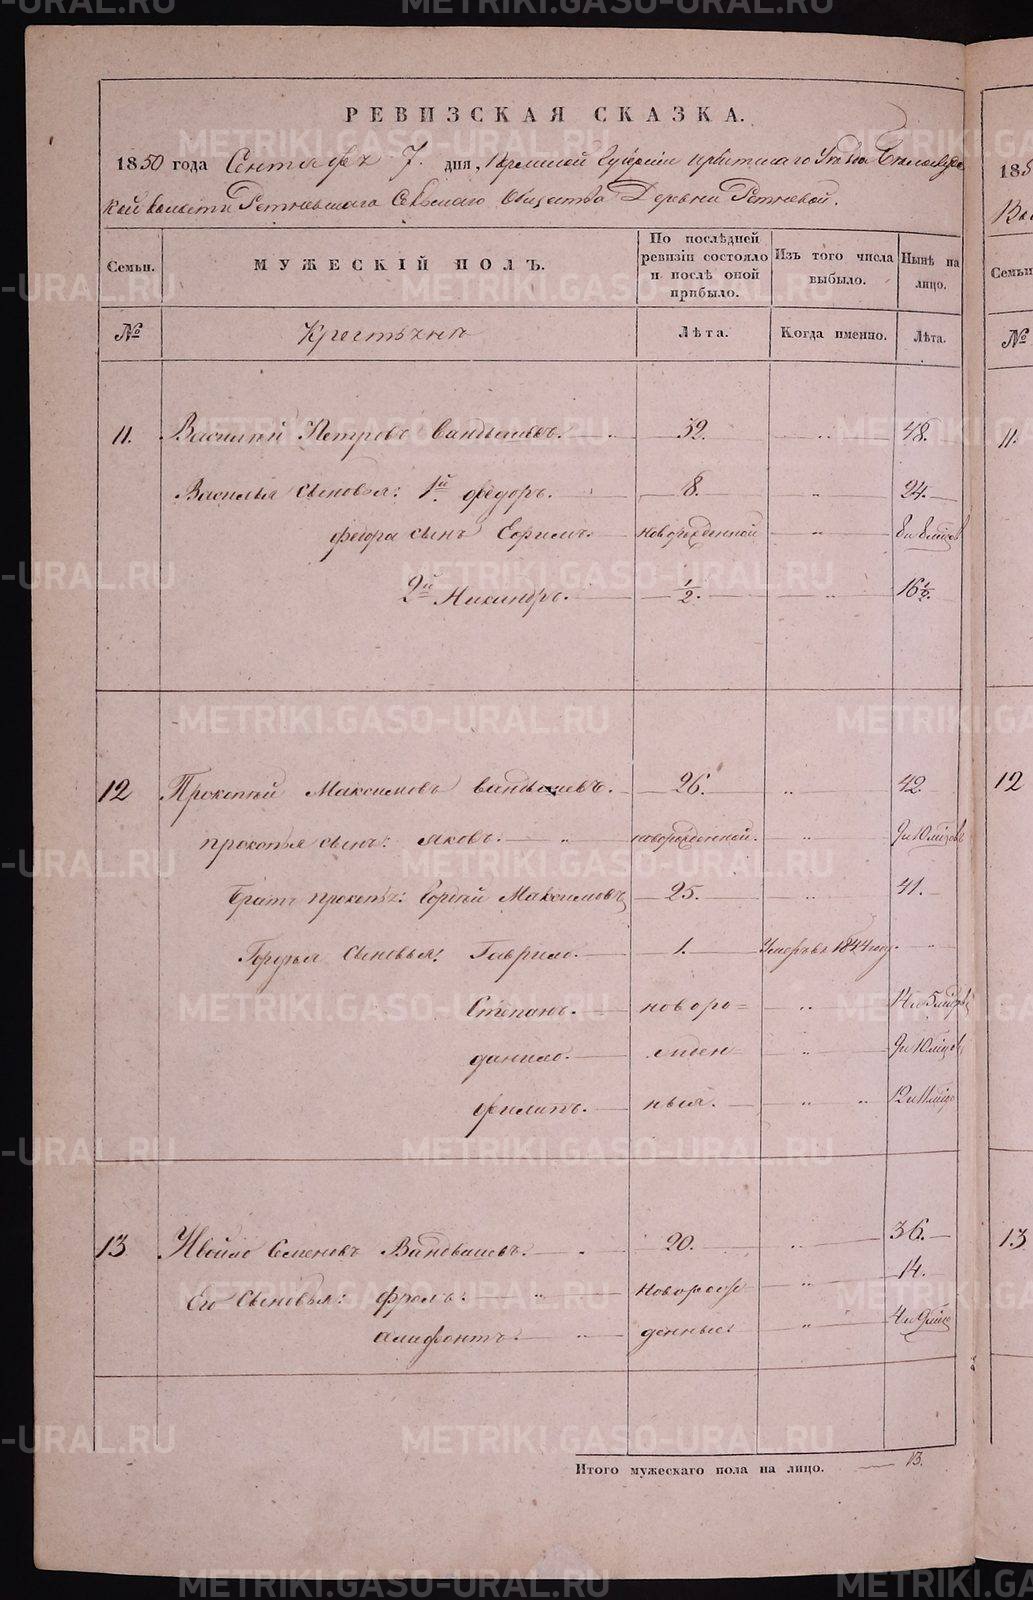 РЕВИЗСКАЯ СКАЗКА.
1850 года Сентября 7. дня, Пермской Губернии Ирбитскаго Уезда Белослуд-
кой волости Ретневскаго Сельскаго Общества Деревни Ретневой.
Семьи. МУЖЕСКІЙ ПОЛЪ. По послѣдней ревизіи состояло и послѣ оной прибыло. Изъ того числа выбыло. Нынѣ на лицо.
№ Крестьяне Лѣта. Когда именно. Лѣта.
11. Василий Петровъ Вандышевъ. 32. „ 48.
Василья сыновья: 1й Федоръ. 8. „ 24.
Федора сынъ Ефимъ. новорожденной „
2й Никандръ. 1/2. „ 16 1/2.
12 Прокопий Максимовъ Вандышевъ. 26. „ 42.
Прокопья сынъ: Яковъ. „ новорожденной. „ 9 и 10 мцовъ
Братъ Прокопья: Гордей Максимовъ 25. „ 41.
Гордея сыновья: Гаврило. 1. Умеръ въ 1844 году. „
Степанъ. новоро= „ 14 и 5 мцовъ
Данило. жден „ 9 и 10 мцовъ
Филипъ. ныя. „ „ 12 и 11 мцо
13 Самойло Семеновъ Вандышевъ. „ 20. „ 36.
Его сыновья: Фролъ. „ новорож „ 14.
Ашифонтъ. „ денные: „ 4 и 9 мцо
Итого мужескаго пола на лицо. 13.
185
Во
Семьи
№
11.
12
13
METRIKI.GASO-URAL.RU